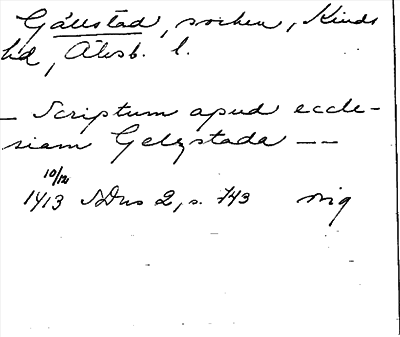 Gällstad, socken, Kinds
hd, Älvsb. l.
_ Scriptum apud eccle-
siam Gelzstada _ _
10/12
1413 SDns 2, s. 743 sig